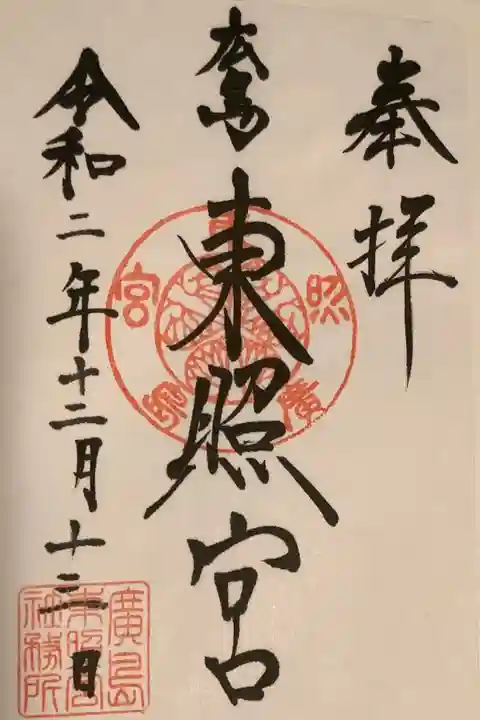 奉拝
広島
東照宮
令和二年十二月十三日
廣島
東照宮
社務所